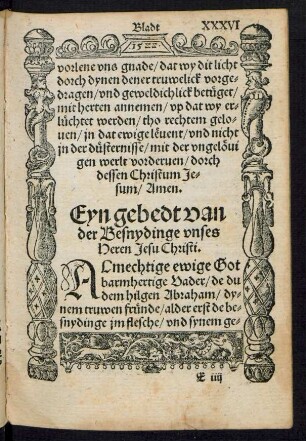 Bladt XXXVI
1522
vorlene vns gnade/ dat wy dit licht
dorch dynen dener truwelick vorge-
dragen/ vnd geweldichlick betüget/
mit herten annemen/ vp dat wy er-
lüchtet werden/ tho rechtem gelo-
uen/ jn dat ewige leuent/ vnd nicht
jn der düsternisse/ mit der vngelöui
gen werlt vorderuen/ dorch
dessen Christum Je-
sum/ Amen.
Eyn gebedt van
der Besnydinge vnses
Heren Jesu Christi.
ALmechtige ewige Got
barmhertige Vader/ de du
dem hilgen Abraham/ dy-
nem truwen fründe/ alder erst de be-
snydinge jm flesche/ vnd synem ge-
E iiij